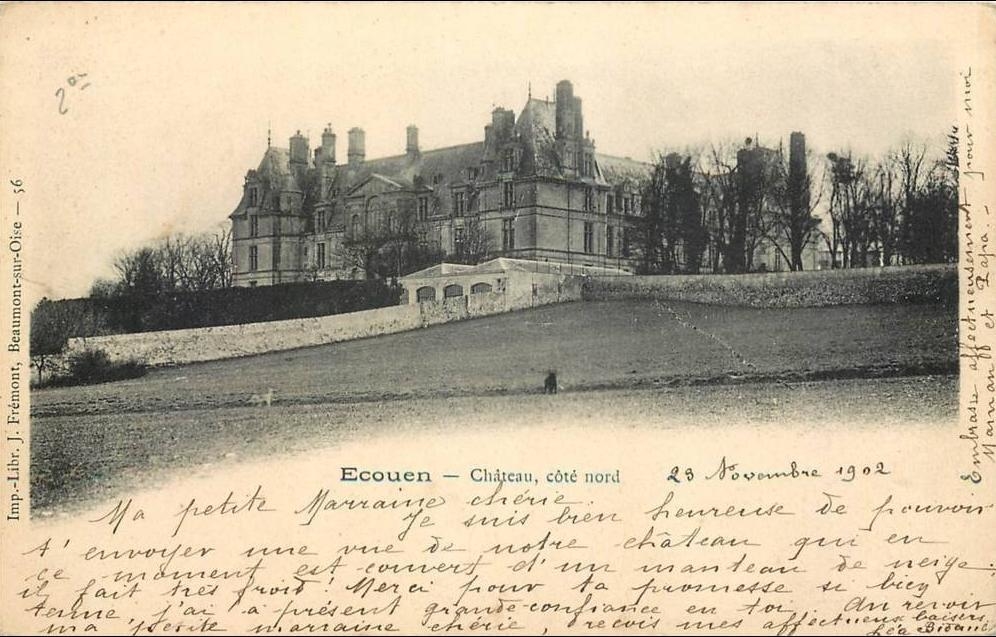 Imp.-Libr. J. Frémont, Beaumont-sur-Oise — 56
Ecouen — Château, côté nord
23 Novembre 1902
Ma petite Marraine chérie.
Je suis bien heureuse de pouvoir
t'envoyer une vue de notre château qui en
ce moment est couvert d'un manteau de neige;
il fait très froid! Merci pour ta promesse si bien
tenue, j'ai à présent grande confiance en toi. Au revoir
ma petite marraine chérie, reçois mes affectueux baisers.
Embrasse affectueusement pour moi
et Pepa.-